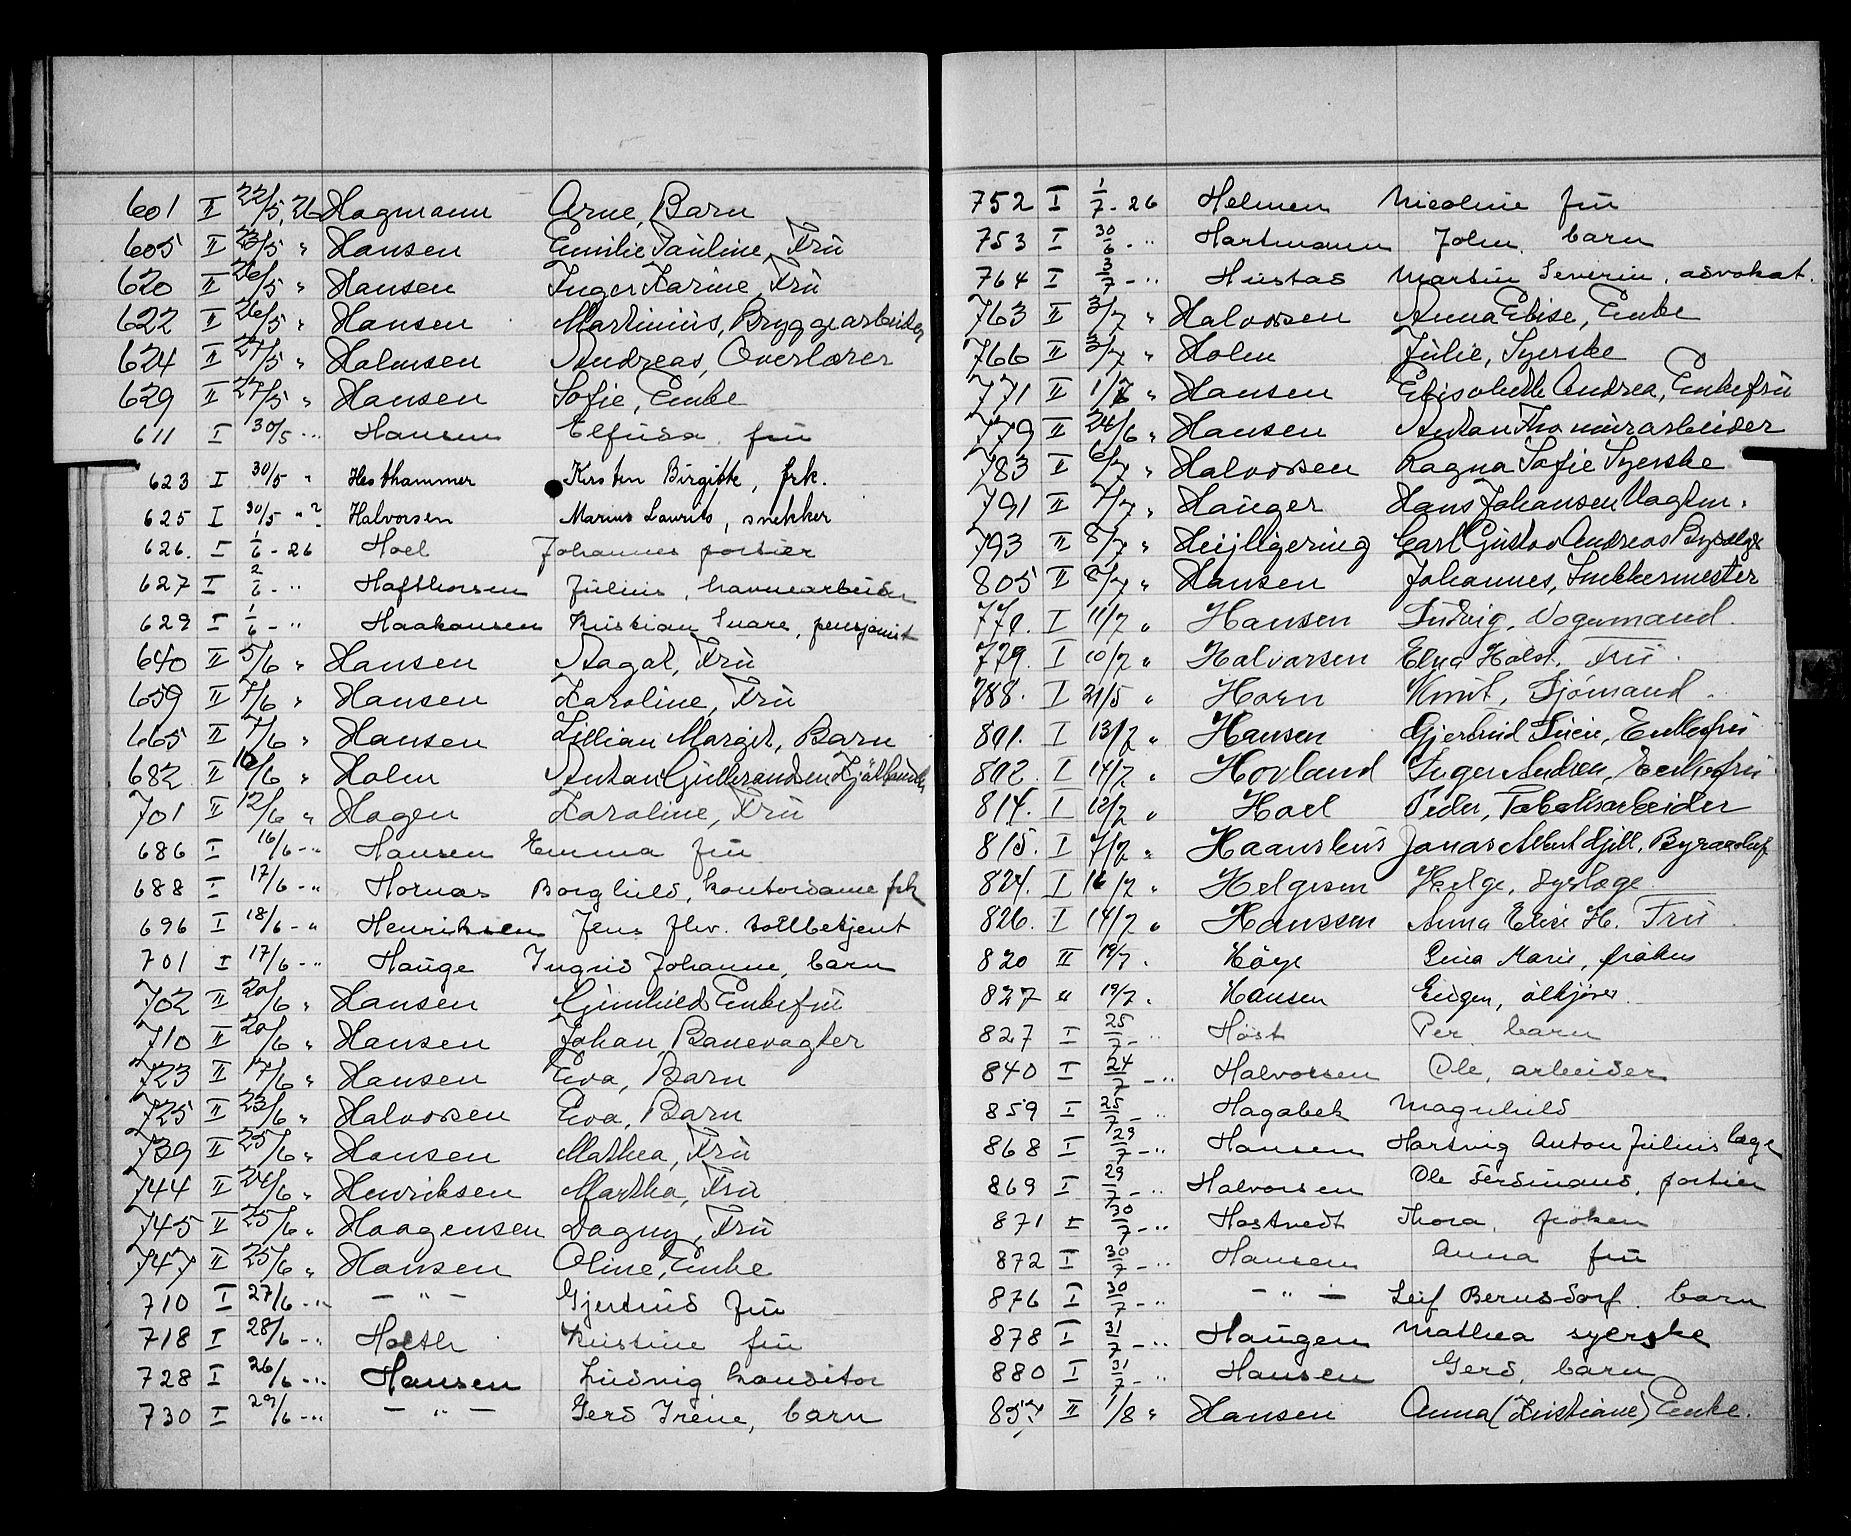 601 II 22/5, 26 Hagmann Arne, Barn
605 II 23/5 " Hansen Emilie Pauline, Fru
620 II 26/5 " Hansen Inger Karine, Frü
622 II 26/5 " Hansen Martinius, Bryggearbeider
624 II 27/5 " Halmsen Andreas, Overlærer
629 II 27/5 " Hansen Sofie, Enke
611 I 30/5 - " Hansen Elfusa, frü
623 I 30/5 " Hesthammer Kirsten Birgitte, frk.
625 I 30/5 " ? Halvorsen Marius Laurits, snekker
626. I 1/6 - 26 Hoel Johannes portier
627 I 2/6 - " Hafthorsen Julius, havnearbeider
629 I 1/6 - " Haakonsen Kristian Snare, pensjonist
640 II 5/6 " Hansen Aagot, Frü
659 II 7/6 " Hansen Karoline, Frü
665 II 7/6 " Hansen Lillian Margit, Barn
682 II 10/6 " Holm Anton Gulbrandsen
701 II 12/6 " Hagen Karoline, Frü
686 I 16/6 - " Hansen Emma frü
688 I 17/6 - " Hornæs Borghild, kontordame frk
696 I 18/6 - " Henriksen Jens fhv. tollbetjent
701 I 17/6 - " Hauge Ingrid Johanne, barn
702 II 20/6 " Hansen Gunhild Enkefrü
710 II 20/6 " Hansen Johan, Banevagter
723 II 17/6 " Hansen Eva, Barn
725 II 23/6 " Halvorsen Eva, Barn
739 II 25/6 " Hansen Mathea, Frü
744 II 24/6 " Henriksen Martha, Frü
745 II 25/6 " Haagensen Dagny, Frü
747 II 25/6 " Hansen Oline, Enke
710 I 27/6 - " — " — Gjertrud frü
718 I 28/6 - " Holth Kristine frü
728 I 26/6 - " Hansen Ludvig konditor
730 I 29/6 - " — " — Gerd Irene, barn
752 I 1/7 - 26 Helmen Nicoline frü
753 I 30/6 - " Hartmann John, barn
764 I 3/7 - " Hustad Martin Severin, advokat.
763 II 3/7 " Halvorsen Anna Elise, Enke
766 II 3/7 " Holm Julie, Syerske
771 II 1/7 " Hansen Elisabeth Andrea, Enkefrü
779 II 24/6 " Hansen Anton Tho murarbeider
783 II 6/7 " Halvorsen Ragna Sofie Syerske
791 II 7/7 " Hauger Hans Johansen Vagtm.
793 II 8/7 " Heijligering Carl Gustav Andreas
805 II 8/7 " Hansen Johannes, Snekkermester
770. I 11/7 " Hansen Ludvig, Vognmand.
779. I 10/7 " Halvorsen Elna Holst, Frü.
788. I 21/5 " Horn Knut, Sjömand.
801. I 13/7 " Hansen Gjertrud Lucie, Enkefrü
802. I 14/7 " Hovland Inger Andrea, Enkefrü
814. I 12/7 " Hoel Peder, Tobaksarbeider
815. I 7/7 " Haanshus Jonas Albert Kjell, Byraachef
824. I 16/7 " Helgesen Helge, Dyrlæge
826. I 14/7 " Hanssen Anna Elise H. Frü.
820 II 19/7. Höye Lina Marie, fröken
827 " 19/7. Hansen Eugen, ölkjörer.
827 I 25/7 - " Höst Per, barn
840 I 24/7 - " Halvorsen Ole, arbeider
859 I 25/7 - " Hagabek Magnhild
868 I 29/7 - " Hansen Hartvig Anton Julius læge
869 I 29/7 - " Halvorsen Ole Ferdinand, portier
871 I 30/7 - " Hastvedt Thora, fröken
872 I 30/7 - " Hansen Anna frü
876 I 30/7 - " — " — Leif Berndorf. barn
878 I 31/7 - " Haugen Mathea syerske
880 I 31/7 - " Hansen Gerd, barn
857 II 1/8 " Hansen Anna (Kristiane) Enke.